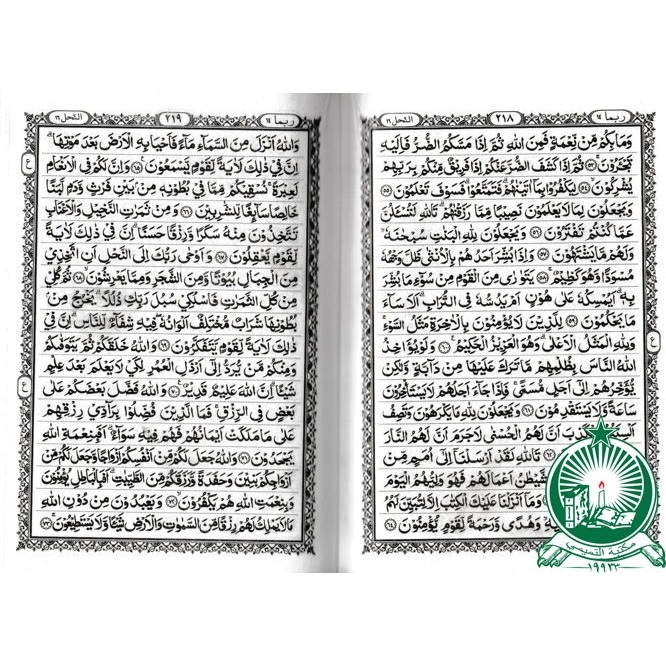 ربما ١٤ ٢١٨ النحل ١٦
وَمَا بِكُمْ مِّنْ نِّعْمَةٍ فَمِنَ اللّٰهِ ثُمَّ اِذَا مَسَّكُمُ الضُّرُّ فَاِلَيْهِ
تَجْـَٔرُوْنَ ٥٣ ثُمَّ اِذَا كَشَفَ الضُّرَّ عَنْكُمْ اِذَا فَرِيْقٌ مِّنْكُمْ بِرَبِّهِمْ
يُشْرِكُوْنَ ٥٤ لِيَكْفُرُوْا بِمَآ اٰتَيْنٰهُمْ فَتَمَتَّعُوْا فَسَوْفَ تَعْلَمُوْنَ ٥٥
وَيَجْعَلُوْنَ لِمَا لَا يَعْلَمُوْنَ نَصِيْبًا مِّمَّا رَزَقْنٰهُمْ تَاللّٰهِ لَتُسْـَٔلُنَّ
عَمَّا كُنْتُمْ تَفْتَرُوْنَ ٥٦ وَيَجْعَلُوْنَ لِلّٰهِ الْبَنٰتِ سُبْحٰنَهٗ
وَلَهُمْ مَّا يَشْتَهُوْنَ ٥٧ وَاِذَا بُشِّرَ اَحَدُهُمْ بِالْاُنْثٰى ظَلَّ وَجْهُهٗ
مُسْوَدًّا وَّهُوَ كَظِيْمٌ ٥٨ يَتَوَارٰى مِنَ الْقَوْمِ مِنْ سُوْٓءِ مَا بُشِّرَ
بِهٖ اَيُمْسِكُهٗ عَلٰى هُوْنٍ اَمْ يَدُسُّهٗ فِى التُّرَابِ اَلَا سَآءَ
مَا يَحْكُمُوْنَ ٥٩ لِلَّذِيْنَ لَا يُؤْمِنُوْنَ بِالْاٰخِرَةِ مَثَلُ السَّوْءِ
وَلِلّٰهِ الْمَثَلُ الْاَعْلٰى وَهُوَ الْعَزِيْزُ الْحَكِيْمُ ٦٠ وَلَوْ يُؤَاخِذُ
اللّٰهُ النَّاسَ بِظُلْمِهِمْ مَّا تَرَكَ عَلَيْهَا مِنْ دَآبَّةٍ وَّلٰكِنْ
يُّؤَخِّرُهُمْ اِلٰٓى اَجَلٍ مُّسَمًّى فَاِذَا جَآءَ اَجَلُهُمْ لَا يَسْتَاْخِرُوْنَ
سَاعَةً وَّلَا يَسْتَقْدِمُوْنَ ٦١ وَيَجْعَلُوْنَ لِلّٰهِ مَا يَكْرَهُوْنَ وَتَصِفُ
الْكَذِبَ اَنَّ لَهُمُ الْحُسْنٰى لَا جَرَمَ اَنَّ لَهُمُ النَّارَ
تَاللّٰهِ لَقَدْ اَرْسَلْنَآ اِلٰٓى اُمَمٍ مِّنْ
الشَّيْطٰنُ اَعْمَالَهُمْ فَهُوَ وَلِيُّهُمُ الْيَوْمَ
وَمَآ اَنْزَلْنَا عَلَيْكَ الْكِتٰبَ اِلَّا لِتُبَيِّنَ لَهُمُ
وَهُدًى وَّرَحْمَةً لِّقَوْمٍ يُّؤْمِنُوْنَ ٦٤
ربما ١٤ ٢١٩ النحل ١٦
وَاللّٰهُ اَنْزَلَ مِنَ السَّمَآءِ مَآءً فَاَحْيَا بِهِ الْاَرْضَ بَعْدَ مَوْتِهَا
اِنَّ فِيْ ذٰلِكَ لَاٰيَةً لِّقَوْمٍ يَّسْمَعُوْنَ ٦٥ وَاِنَّ لَكُمْ فِى الْاَنْعَامِ
لَعِبْرَةً نُسْقِيْكُمْ مِّمَّا فِيْ بُطُوْنِهٖ مِنْ بَيْنِ فَرْثٍ وَّدَمٍ لَّبَنًا
خَالِصًا سَآئِغًا لِّلشّٰرِبِيْنَ ٦٦ وَمِنْ ثَمَرٰتِ النَّخِيْلِ وَالْاَعْنَابِ
تَتَّخِذُوْنَ مِنْهُ سَكَرًا وَّرِزْقًا حَسَنًا اِنَّ فِيْ ذٰلِكَ لَاٰيَةً
لِّقَوْمٍ يَّعْقِلُوْنَ ٦٧ وَاَوْحٰى رَبُّكَ اِلَى النَّحْلِ اَنِ اتَّخِذِيْ
مِنَ الْجِبَالِ بُيُوْتًا وَّمِنَ الشَّجَرِ وَمِمَّا يَعْرِشُوْنَ ٦٨ ثُمَّ كُلِيْ
مِنْ كُلِّ الثَّمَرٰتِ فَاسْلُكِيْ سُبُلَ رَبِّكِ ذُلُلًا يَخْرُجُ مِنْ
بُطُوْنِهَا شَرَابٌ مُّخْتَلِفٌ اَلْوَانُهٗ فِيْهِ شِفَآءٌ لِّلنَّاسِ اِنَّ فِيْ
ذٰلِكَ لَاٰيَةً لِّقَوْمٍ يَّتَفَكَّرُوْنَ ٦٩ وَاللّٰهُ خَلَقَكُمْ ثُمَّ يَتَوَفّٰىكُمْ
وَمِنْكُمْ مَّنْ يُّرَدُّ اِلٰٓى اَرْذَلِ الْعُمُرِ لِكَيْ لَا يَعْلَمَ بَعْدَ عِلْمٍ
شَيْـًٔا اِنَّ اللّٰهَ عَلِيْمٌ قَدِيْرٌ ٧٠ وَاللّٰهُ فَضَّلَ بَعْضَكُمْ عَلٰى
بَعْضٍ فِى الرِّزْقِ فَمَا الَّذِيْنَ فُضِّلُوْا بِرَآدِّيْ رِزْقِهِمْ
عَلٰى مَا مَلَكَتْ اَيْمَانُهُمْ فَهُمْ فِيْهِ سَوَآءٌ اَفَبِنِعْمَةِ اللّٰهِ
يَجْحَدُوْنَ ٧١ وَاللّٰهُ جَعَلَ لَكُمْ مِّنْ اَنْفُسِكُمْ اَزْوَاجًا وَّجَعَلَ لَكُمْ مِّنْ
اَزْوَاجِكُمْ بَنِيْنَ وَحَفَدَةً وَّرَزَقَكُمْ مِّنَ الطَّيِّبٰتِ اَفَبِالْبَاطِلِ يُؤْمِنُوْنَ
وَبِنِعْمَتِ اللّٰهِ هُمْ يَكْفُرُوْنَ ٧٢ وَيَعْبُدُوْنَ مِنْ دُوْنِ اللّٰهِ
مَا لَا يَمْلِكُ لَهُمْ رِزْقًا مِّنَ السَّمٰوٰتِ وَالْاَرْضِ شَيْـًٔا وَّلَا يَسْتَطِيْعُوْنَ ٧٣
مكتبة التميمي
١٩٩٢٣